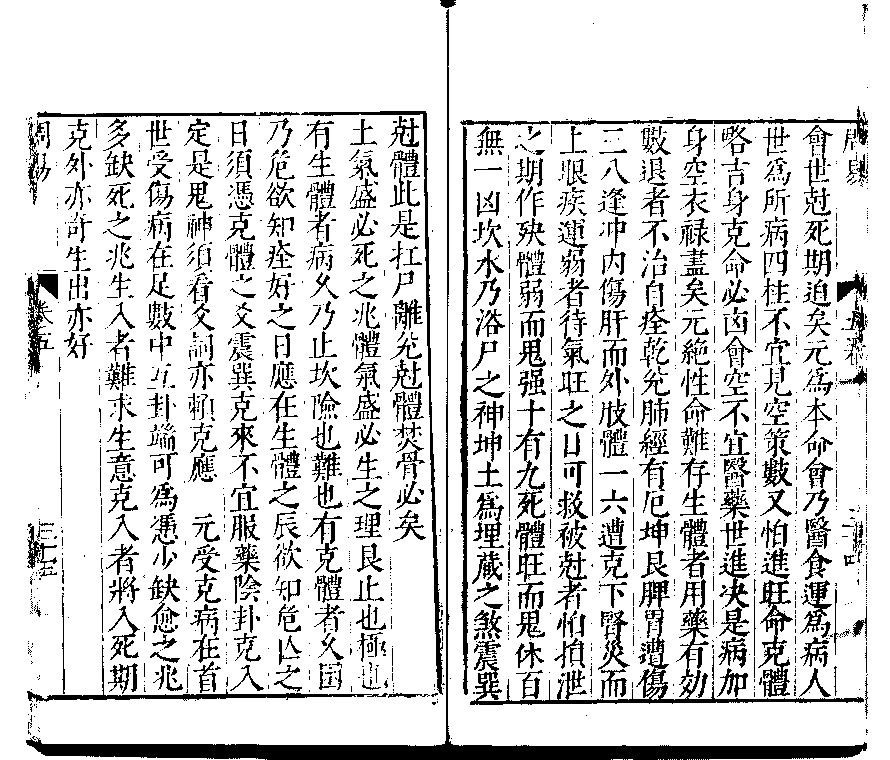 周易
五卷
三十四
會世尅死期迫矣元爲本命會乃醫食運爲病人
世爲所病四柱不宜見空策數又怕進旺命克體
畧吉身克命必凶會空不宜醫藥世進决是病加
身空衣祿盡矣元絶性命難存生體者用藥有効
數退者不治自痊乾兊肺經有厄坤艮脾胃遭傷
三八逢冲内傷肝而外肢體一六遭克下腎災而
上眼疾運弱者待氣旺之日可救被尅者怕拍泄
之期作殃體弱而鬼强十有九死體旺而鬼休百
無一凶坎水乃浴尸之神坤土爲埋藏之煞震巽
尅體此是扛尸離兊尅體焚骨必矣
土氣盛必死之兆體氣盛必生之理艮止也極也
有生體者病久乃止坎險也難也有克體者久困
乃危欲知痊好之日應在生體之辰欲知危亾之
日須憑克體之爻震巽克來不宜服藥陰卦克入
定是鬼神須看爻詞亦賴克應 元受克病在首
世受傷病在足數中互卦端可爲憑少缺愈之兆
多缺死之兆生入者難求生意克入者將入死期
克外亦許生出亦好
周易
卷五
三十五